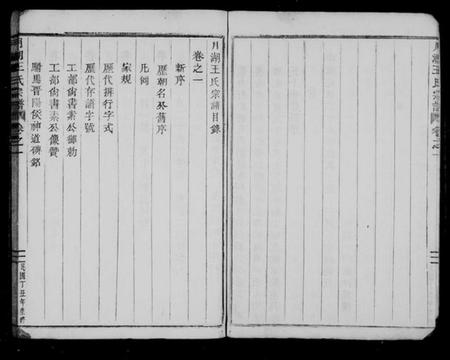 月湖王氏宗譜卷之一
月湖王氏宗譜目錄
卷之一
新序
歷朝名公舊序
凡例
家規
歷代排行字式
歷代存諱字號
工部尚書素公御勅
工部尚書素公像贊
駙馬晋陽侯神道碑銘
月湖王氏宗譜卷之一
民國丁丑年